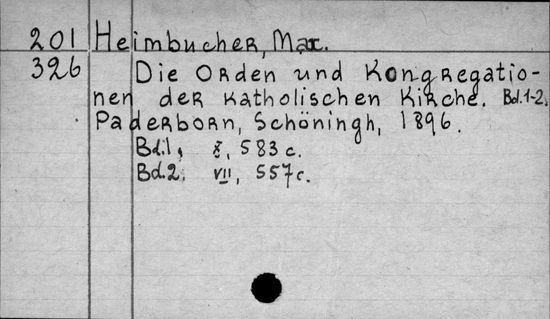 201 Heimbucher, Max.
326 Die Orden und Kongregatio-
nen der katholischen Kirche. Bd.1-2.
Paderborn, Schöningh, 1896.
Bd.1, X, 583 c.
Bd.2. VII, 557 c.